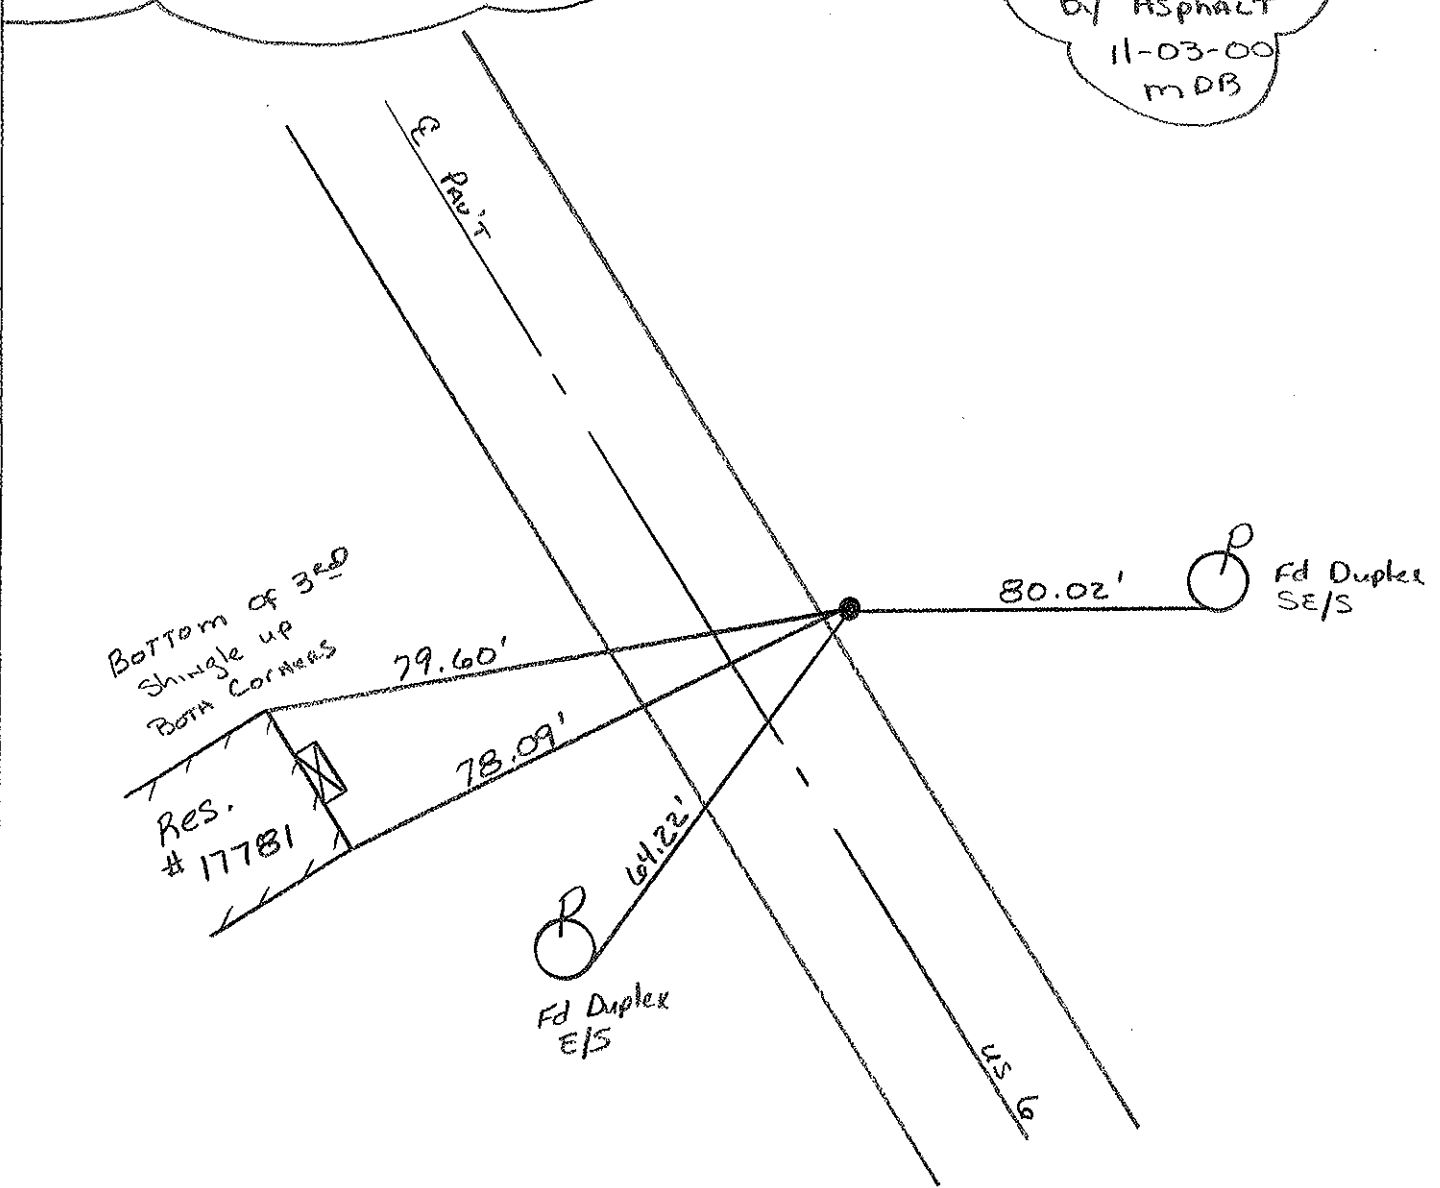 by ASphALT
11-03-00
mDB
℄ PAV'T
80.02'
Fd Duplex
SE/S
BoTTom of 3RD
Shingle up
BoTh CorNers
79.60'
78.09'
Res.
# 17781
64.22'
Fd Duplex
E/S
US 6